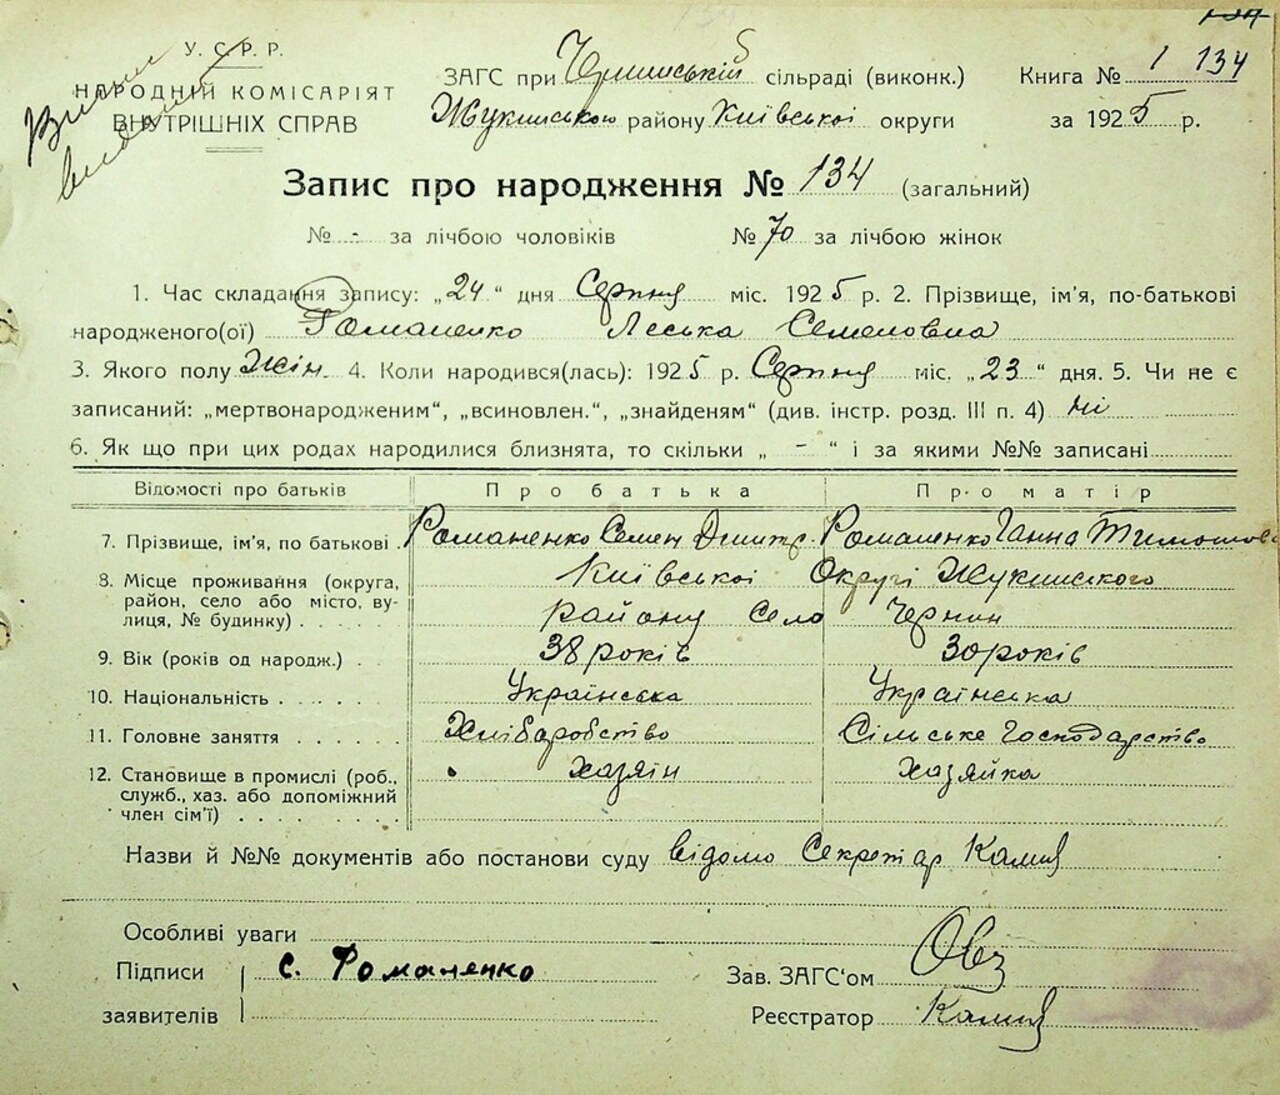 У. С. Р. Р.
НАРОДНІЙ КОМІСАРІЯТ
ВНУТРІШНІХ СПРАВ
ЗАГС при Чернинській сільраді (виконк.)
Жукинського району Київської округи
Книга № 1 134
за 1925 р.
Запис про народження № 134 (загальний)
№ - за лічбою чоловіків № 70 за лічбою жінок
1. Час складання запису: „24“ дня Серпня міс. 1925 р. 2. Прізвище, ім'я, по-батькові
народженого(ої) Романенко Леська Семеновна
3. Якого полу Жін. 4. Коли народився(лась): 1925 р. Серпня міс. „23“ дня. 5. Чи не є
записаний: „мертвонародженим“, „всиновлен.“, „знайденям“ (див. інстр. розд. III п. 4) ні
6. Як що при цих родах народилися близнята, то скільки „ - “ і за якими №№ записані
Відомості про батьків Про батька Про матір
7. Прізвище, ім'я, по батькові Романенко Семен Дмитр. Романенко Ганна Тимошов
8. Місце проживання (округа, Київської Округі Жукинського
район, село або місто, ву-
лиця, № будинку) району Село Чернин
9. Вік (років од народж.) 38 років 30 років
10. Національність Українська Українська
11. Головне заняття Хліборобство Сільське Господарство
12. Становище в промислі (роб., хазяін хазяйка
служб., хаз. або допоміжний
член сім'ї)
Назви й №№ документів або постанови суду відомо Секретар
Особливі уваги
Підписи С. Романенко
заявителів
Зав. ЗАГС'ом
Реєстратор